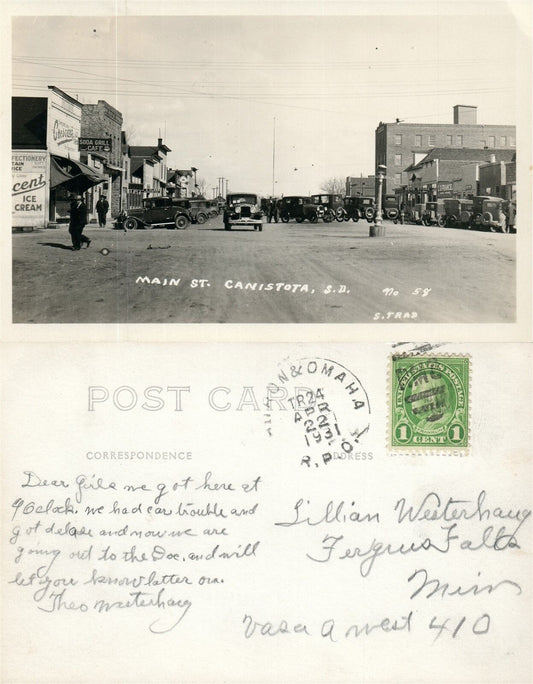 Crescent
CONFECTIONERY
ICE
CREAM
SODA GRILL
CAFE
MAIN ST. CANISTOTA, S.D. No 58
S. TRAD
POST CARD
CORRESPONDENCE
ADDRESS
& OMAHA
TR 24
R.P.O.
UNITED STATES POSTAGE
1 CENT 1
Dear Girls we got here at
9 Oclock. we had car trouble and
got delase and now we are
going out to the Doc. and will
let you know latter on.
Theo Westerhaug
Lillian Westerhaug
Fergus Falls
Minn
Vasa A west 410